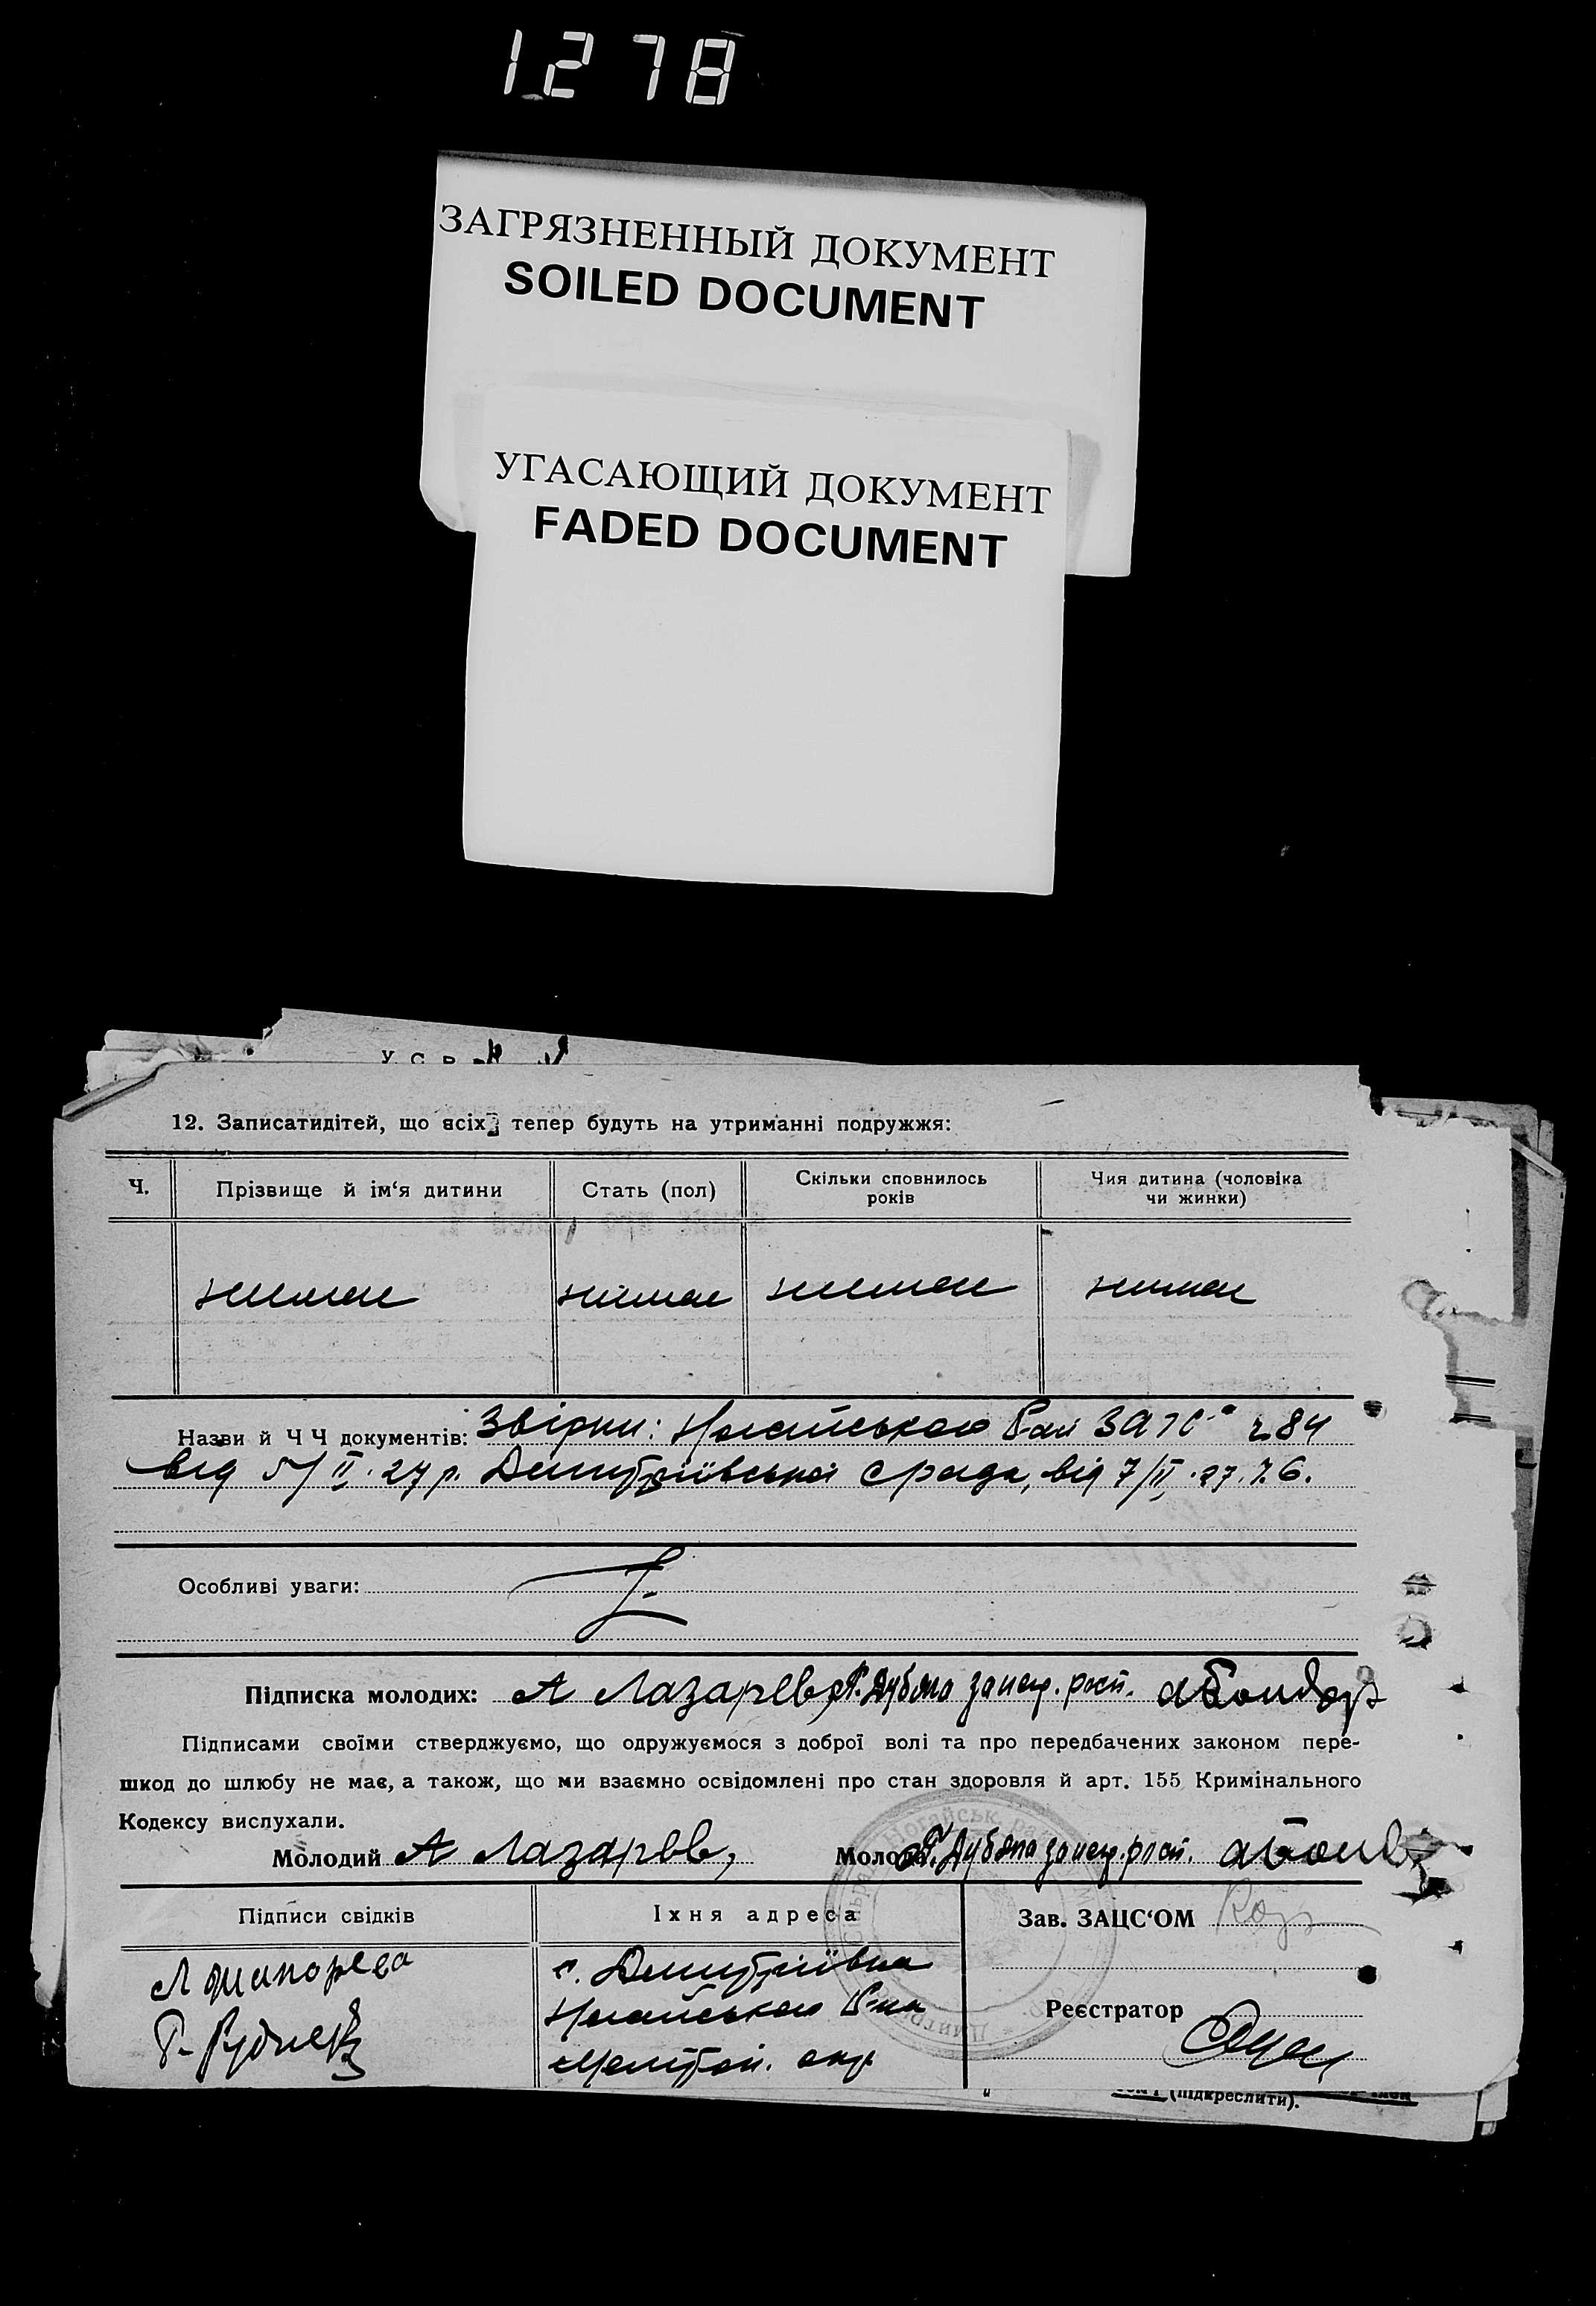 1278
ЗАГРЯЗНЕННЫЙ ДОКУМЕНТ
SOILED DOCUMENT
УГАСАЮЩИЙ ДОКУМЕНТ
FADED DOCUMENT
У С Р
12. Записатидітей, що всіх тепер будуть на утриманні подружжя:
Ч. Прізвище й ім‘я дитини Стать (пол) Скільки сповнилось років Чия дитина (чоловіка чи жинки)
нимає нимає нимає нимає
Назви й Ч Ч документів: Звірки: Ногайського Рай ЗАГС ч 84
від 5/II. 27 р. Дмитріївської срада, від 7/II. 27. 6.
Особливі уваги:
Підписка молодих: А Лазарев, Дубяго
Підписами своїми стверджуємо, що одружуємося з доброї волі та про передбачених законом пере-
шкод до шлюбу не має, а також, що ми взаємно освідомлені про стан здоровля й арт. 155 Кримінального
Кодексу вислухали.
Молодий А Лазарев, Молода
Підписи свідків Їхня адреса Зав. ЗАЦС‘ОМ
с. Дмитріївка
Ногайського Р-на
Мелітоп. окр. Реєстратор
(підкреслити).